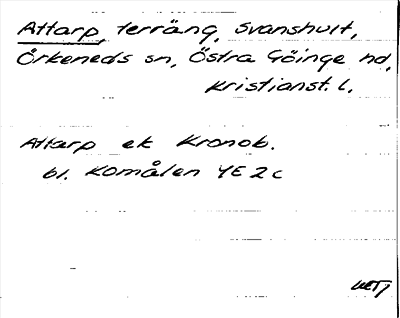 Attarp, terräng, Svanshult,
Örkeneds sn, Östra Göinge hd,
Kristianst. l.
Attarp ek Kronob.
bl. Komålen 4E 2c